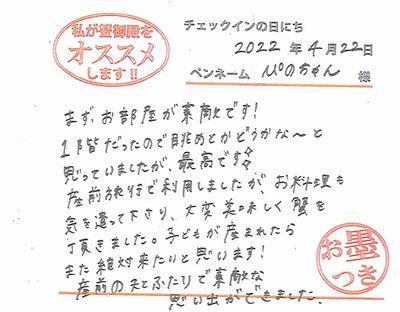 私が蟹御殿を
オススメ
します!!
チェックインの日にち
2022 年 4月 22日
ペンネーム ぴのちゃん 様
まず、お部屋が素敵です!
1階だったので眺めとかどうかな〜と
思っていましたが、最高です✧
産前旅行で利用しましたが、お料理も
気を遣って下さり、大変美味しく蟹を
頂きました。子どもが産まれたら
また絶対来たいと思います!
産前の夫とふたりで素敵な
思い出ができました。
お墨
つき